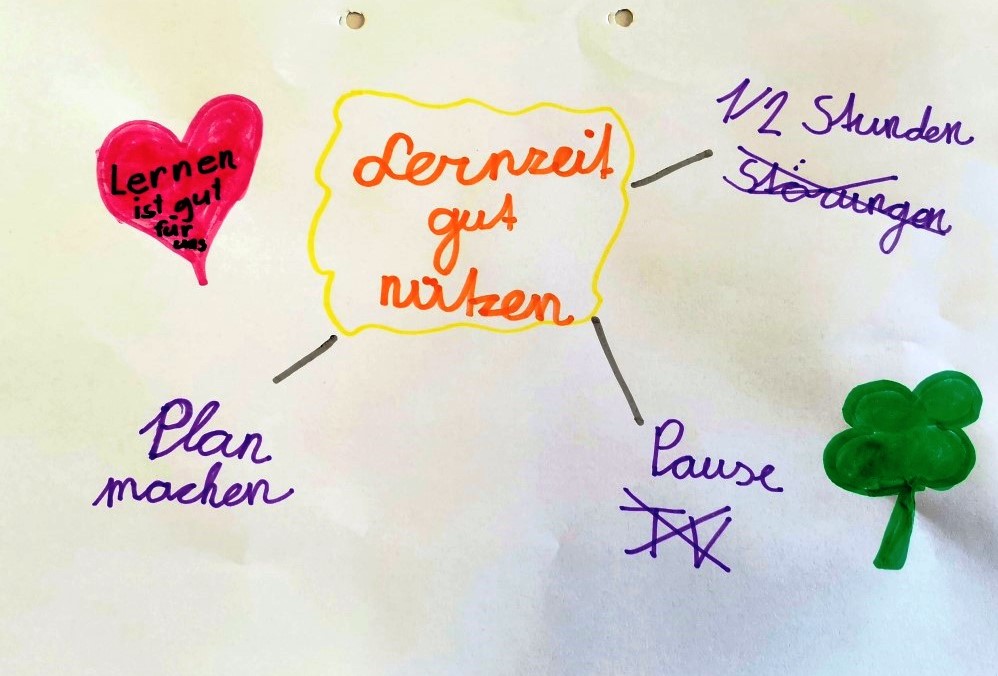 Lernen
ist gut
für
uns
Lernzeit
gut
nützen
1/2 Stunden
Störungen
Plan
machen
Pause
TV